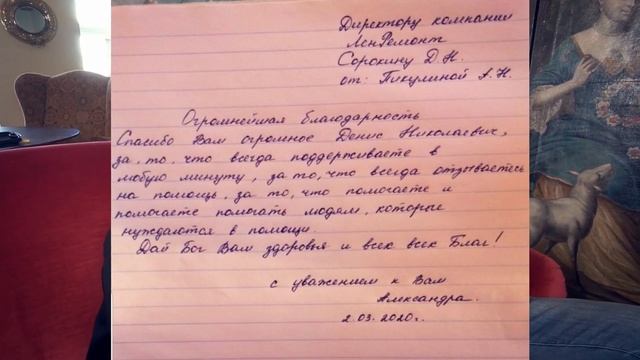 Директору компании
ЛенРемонт
Сорокину Д.Н.
от: Пикулиной А.Н.
Огромнейшая благодарность
Спасибо Вам огромное Денис Николаевич,
за, то, что всегда поддерживаете в
любую минуту, за то, что всегда отзываетесь
на помощь, за то, что помогаете и
помогаете помогать людям, которые
нуждаются в помощи.
Дай Бог Вам здоровья и всех всех Благ!
с уважением к Вам
Александра.
2.03.2020г.